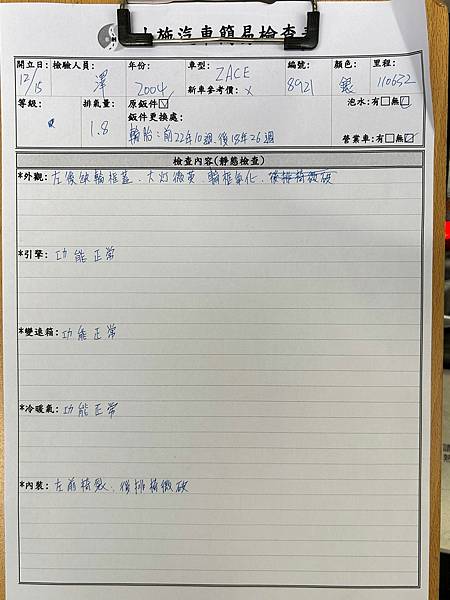 大施汽車簡易檢查表
開立日: 檢驗人員: 年份: 車型: 編號: 顏色: 里程:
12/15 澤 2004 ZACE 8921 銀 110632
新車參考價: x
等級: 排氣量: 原鈑件☑ 泡水:有□無☑
1.8 鈑件更換處:
輪胎:前22年10週.後18年26週 營業車:有□無☑
檢查內容(靜態檢查)
*外觀: 左後缺輪框蓋、大灯微黃、輪框氧化、後排椅微破
*引擎: 功能正常
*變速箱: 功能正常
*冷暖氣: 功能正常
*內裝: 左前椅裂、後排椅微破